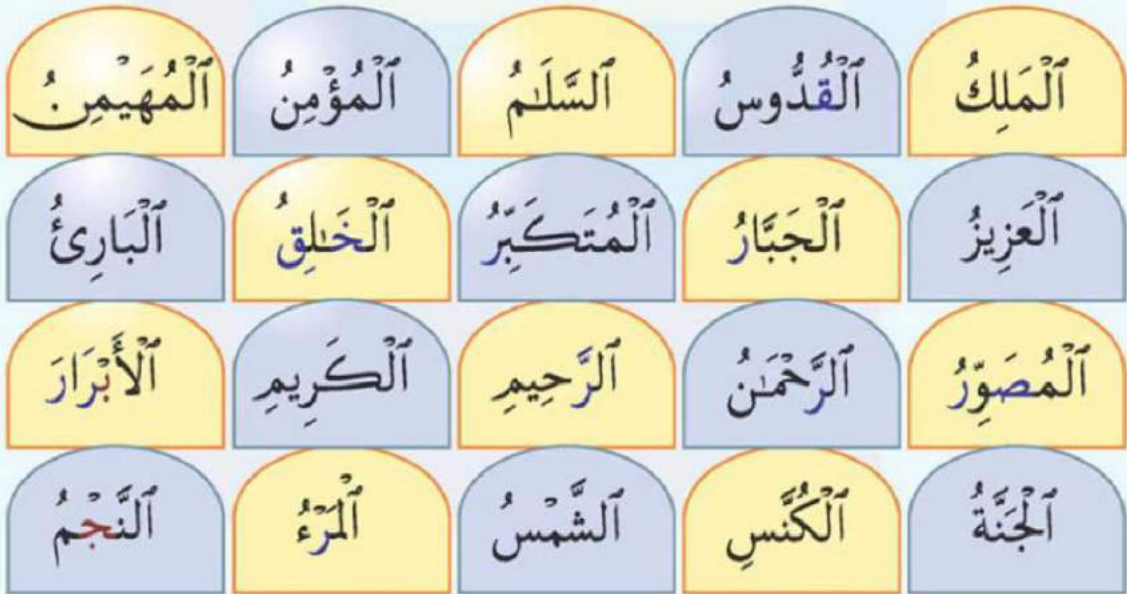 ٱلْمَلِكُ ٱلْقُدُّوسُ ٱلسَّلَـٰمُ ٱلْمُؤْمِنُ ٱلْمُهَيْمِنُ
ٱلْعَزِيزُ ٱلْجَبَّارُ ٱلْمُتَكَبِّرُ ٱلْخَـٰلِقُ ٱلْبَارِئُ
ٱلْمُصَوِّرُ ٱلرَّحْمَـٰنُ ٱلرَّحِيمِ ٱلْكَرِيمِ ٱلْأَبْرَارَ
ٱلْجَنَّةُ ٱلْكُنَّسِ ٱلشَّمْسُ ٱلْمَرْءُ ٱلنَّجْمُ